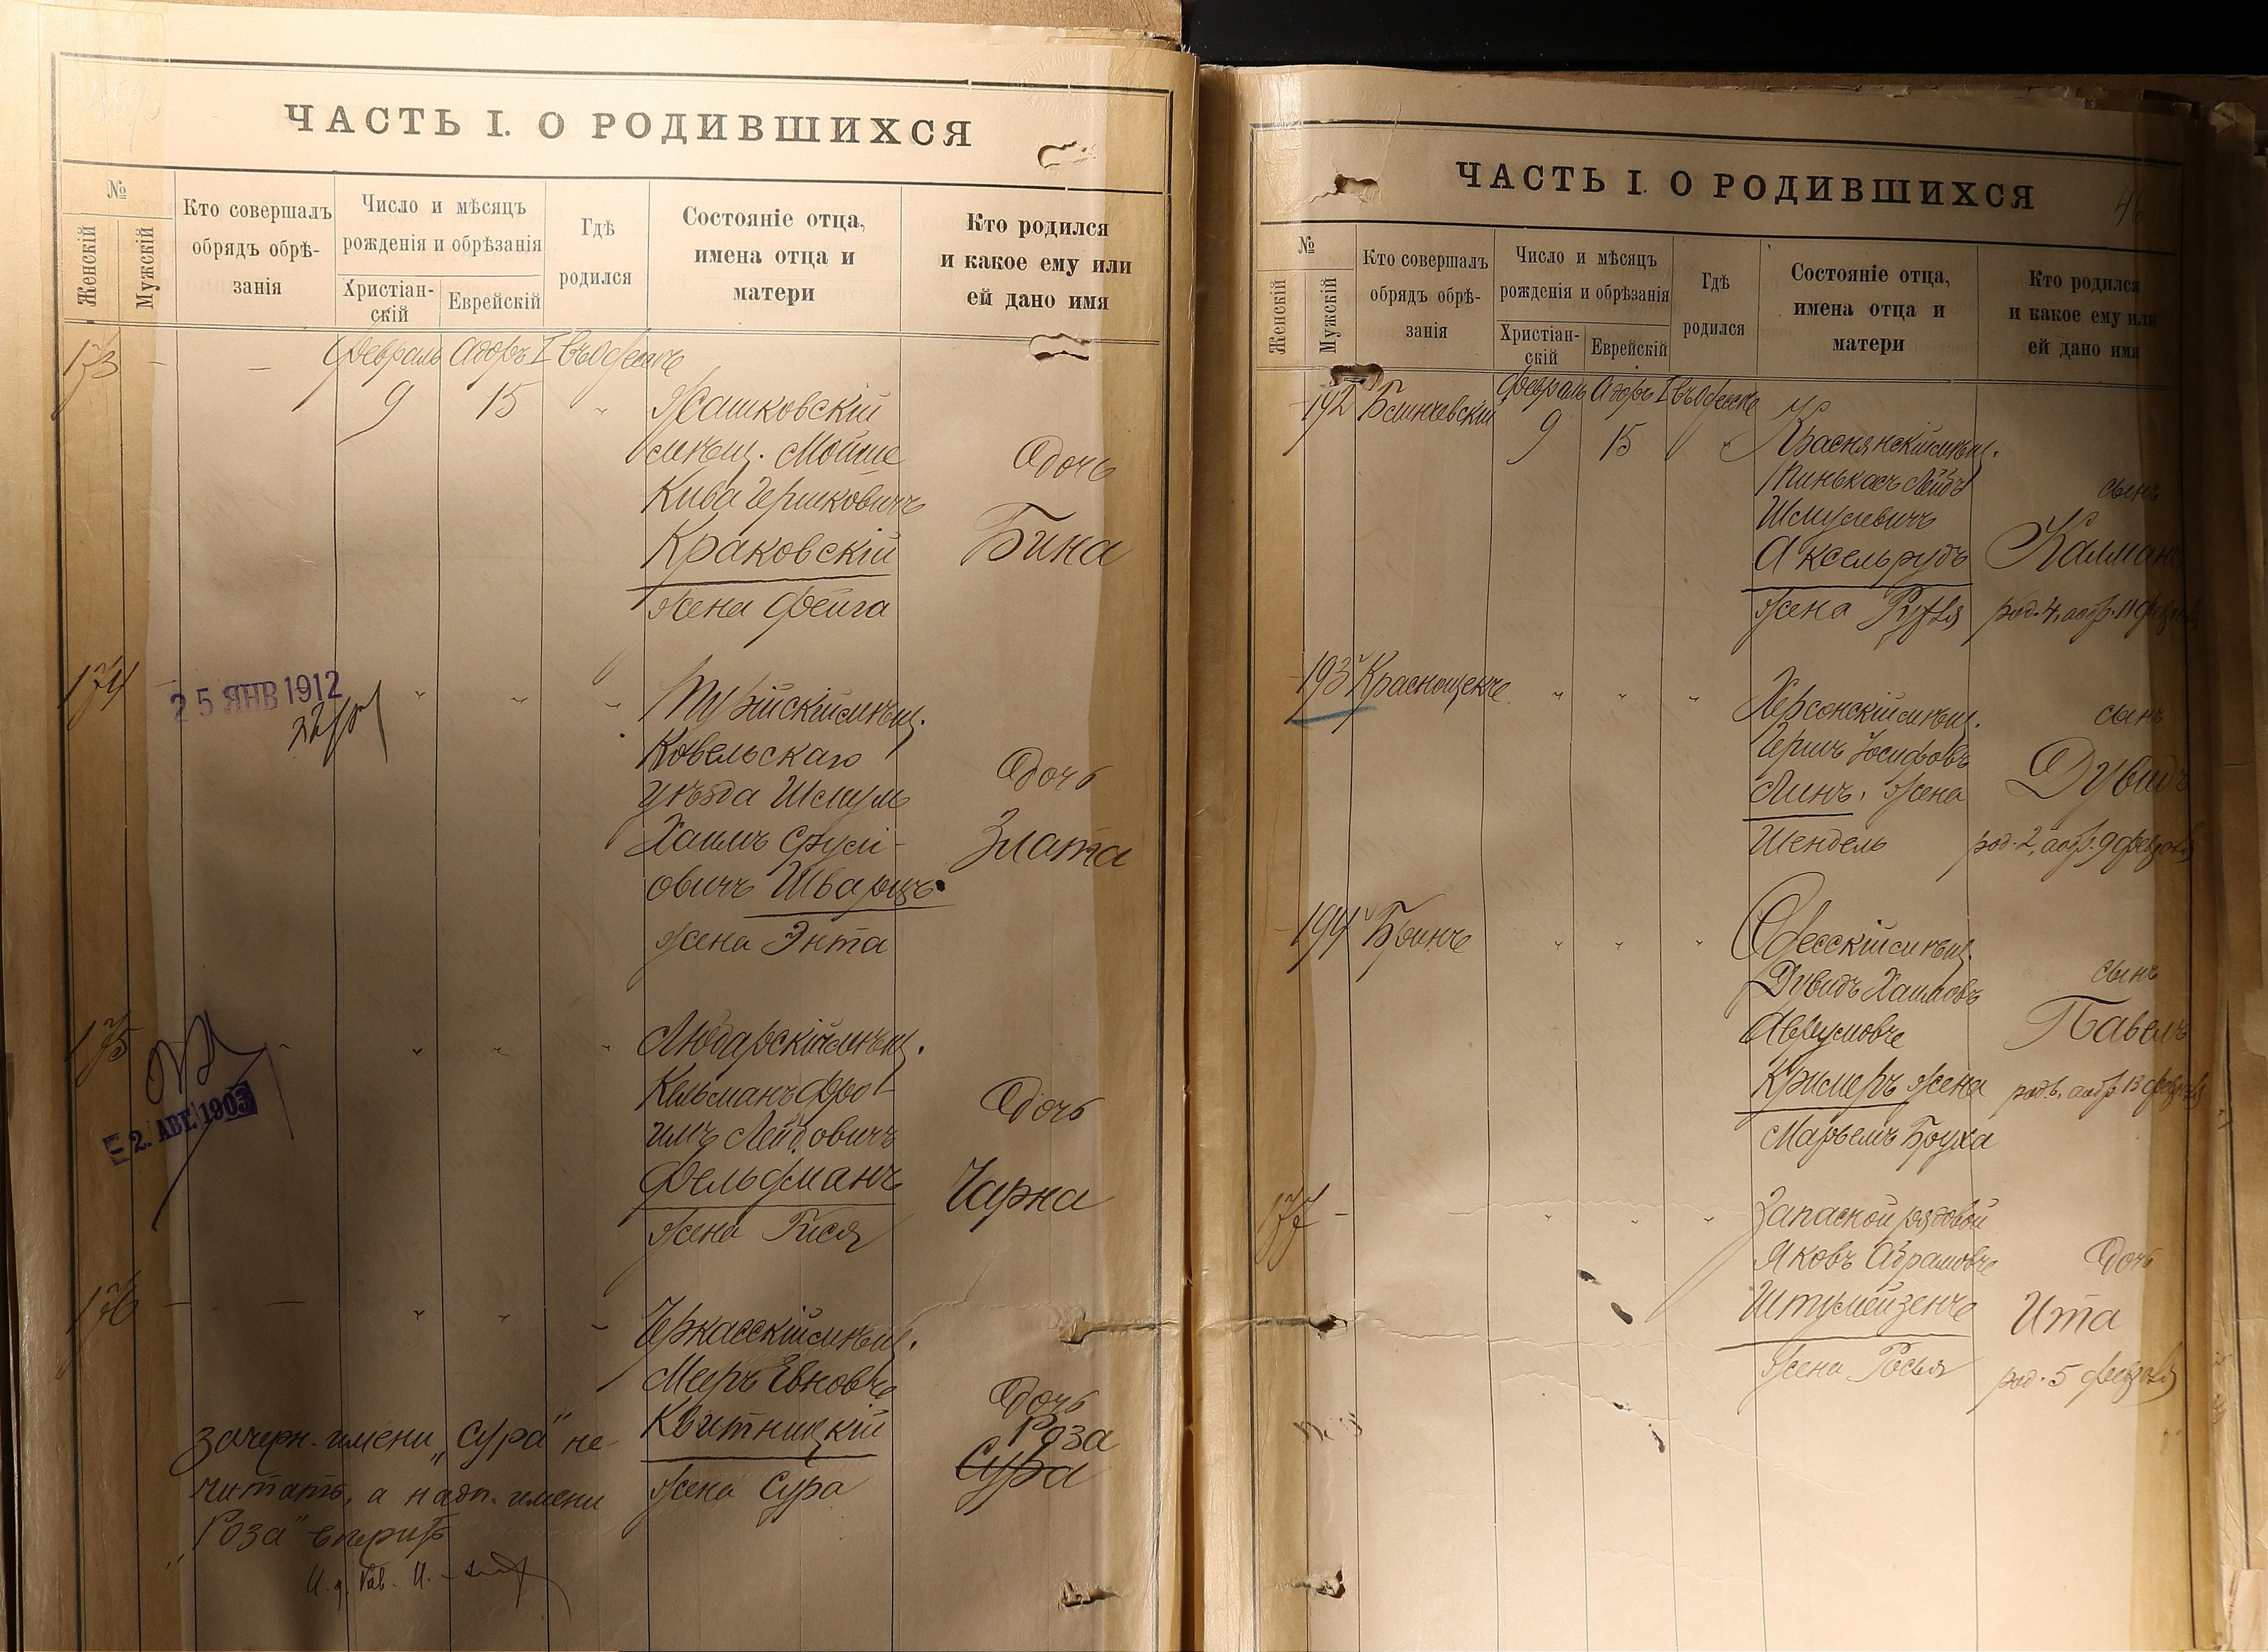 ЧАСТЬ I. О РОДИВШИХСЯ
№
Женскій
Мужскій
Кто совершалъ
обрядъ обрѣ-
занія
Число и мѣсяцъ
рожденія и обрѣзанія
Христіан-
скій
Еврейскій
Гдѣ
родился
Состояніе отца,
имена отца и
матери
Кто родился
и какое ему или
ей дано имя
173 - - Февраль Адоръ I въ Одессѣ
9 15 " Сашковскій
мѣщ. Мойше
Кива Гершковичъ
Краковскій
жена Фейга
Дочь
Бина
174 - 25 ЯНВ 1912 " " "
мѣщ.
Ковельскаго
уѣзда Шмуль
Хаимъ Срули-
овичъ Шварцъ.
жена Энта
Дочь
Злата
175 - " " "
= 2. АВГ. 1903
Любарскій мѣщ.
Кельманъ Фро-
имъ Лейбовичъ
Фельдманъ
жена Гися
Дочь
Чарна
176 - - " " "
Черкасскій мѣщ.
Мееръ Евновъ
Квитницкій
жена Сура
Дочь
Роза
Сура
зачерн. имени „Сура" не
читать, а надп. имени
„Роза" вѣрить
И. д. Рав. И.
ЧАСТЬ I. О РОДИВШИХСЯ
46
№
Женскій
Мужскій
Кто совершалъ
обрядъ обрѣ-
занія
Число и мѣсяцъ
рожденія и обрѣзанія
Христіан-
скій
Еврейскій
Гдѣ
родился
Состояніе отца,
имена отца и
матери
Кто родился
и какое ему или
ей дано имя
192 Февраль Адоръ I въ Одессѣ
9 15 " Краснянскій мѣщ.
Пинькасъ Лейбъ
Шмулевичъ
Аксельрудъ
жена Рухля
сынъ
Калманъ
род. 4, а обр. 11 февраля
193 Краснощекъ " " "
Херсонскій мѣщ.
Гершъ Іосифовъ
Линъ. жена
Шендель
сынъ
Дувидъ
род. 2, а обр. 9 февраля
194 " " "
Одесскій мѣщ.
Дувидъ Хаимовъ
Аврумовъ
Кримеръ жена
Марьемъ Бруха
сынъ
Павелъ
род. 6, а обр. 13 февраля
177 - " " "
Запасной рядовой
Яковъ Абрамовъ
Штульмейзенъ
жена Росья
Дочь
Ита
род. 5 февраля